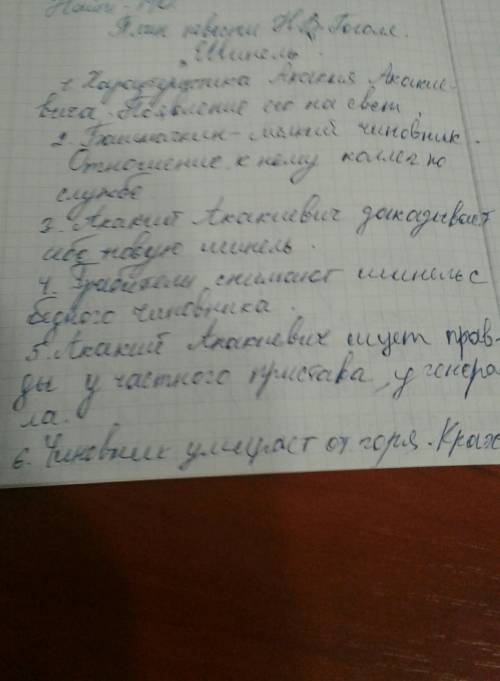 План повести Н.В. Гоголя.
"Шинель"
1. Характеристика Акакия Акакие-
вича. Появление его на свет.
2. Башмачкин - мелкий чиновник.
Отношение к нему коллег по
службе
3. Акакий Акакиевич заказывает
себе новую шинель.
4. Грабители снимают шинель с
бедного чиновника.
5. Акакий Акакиевич ищет прав-
ды у частного пристава, у генера-
ла.
6. Чиновник умирает от горя. Краж